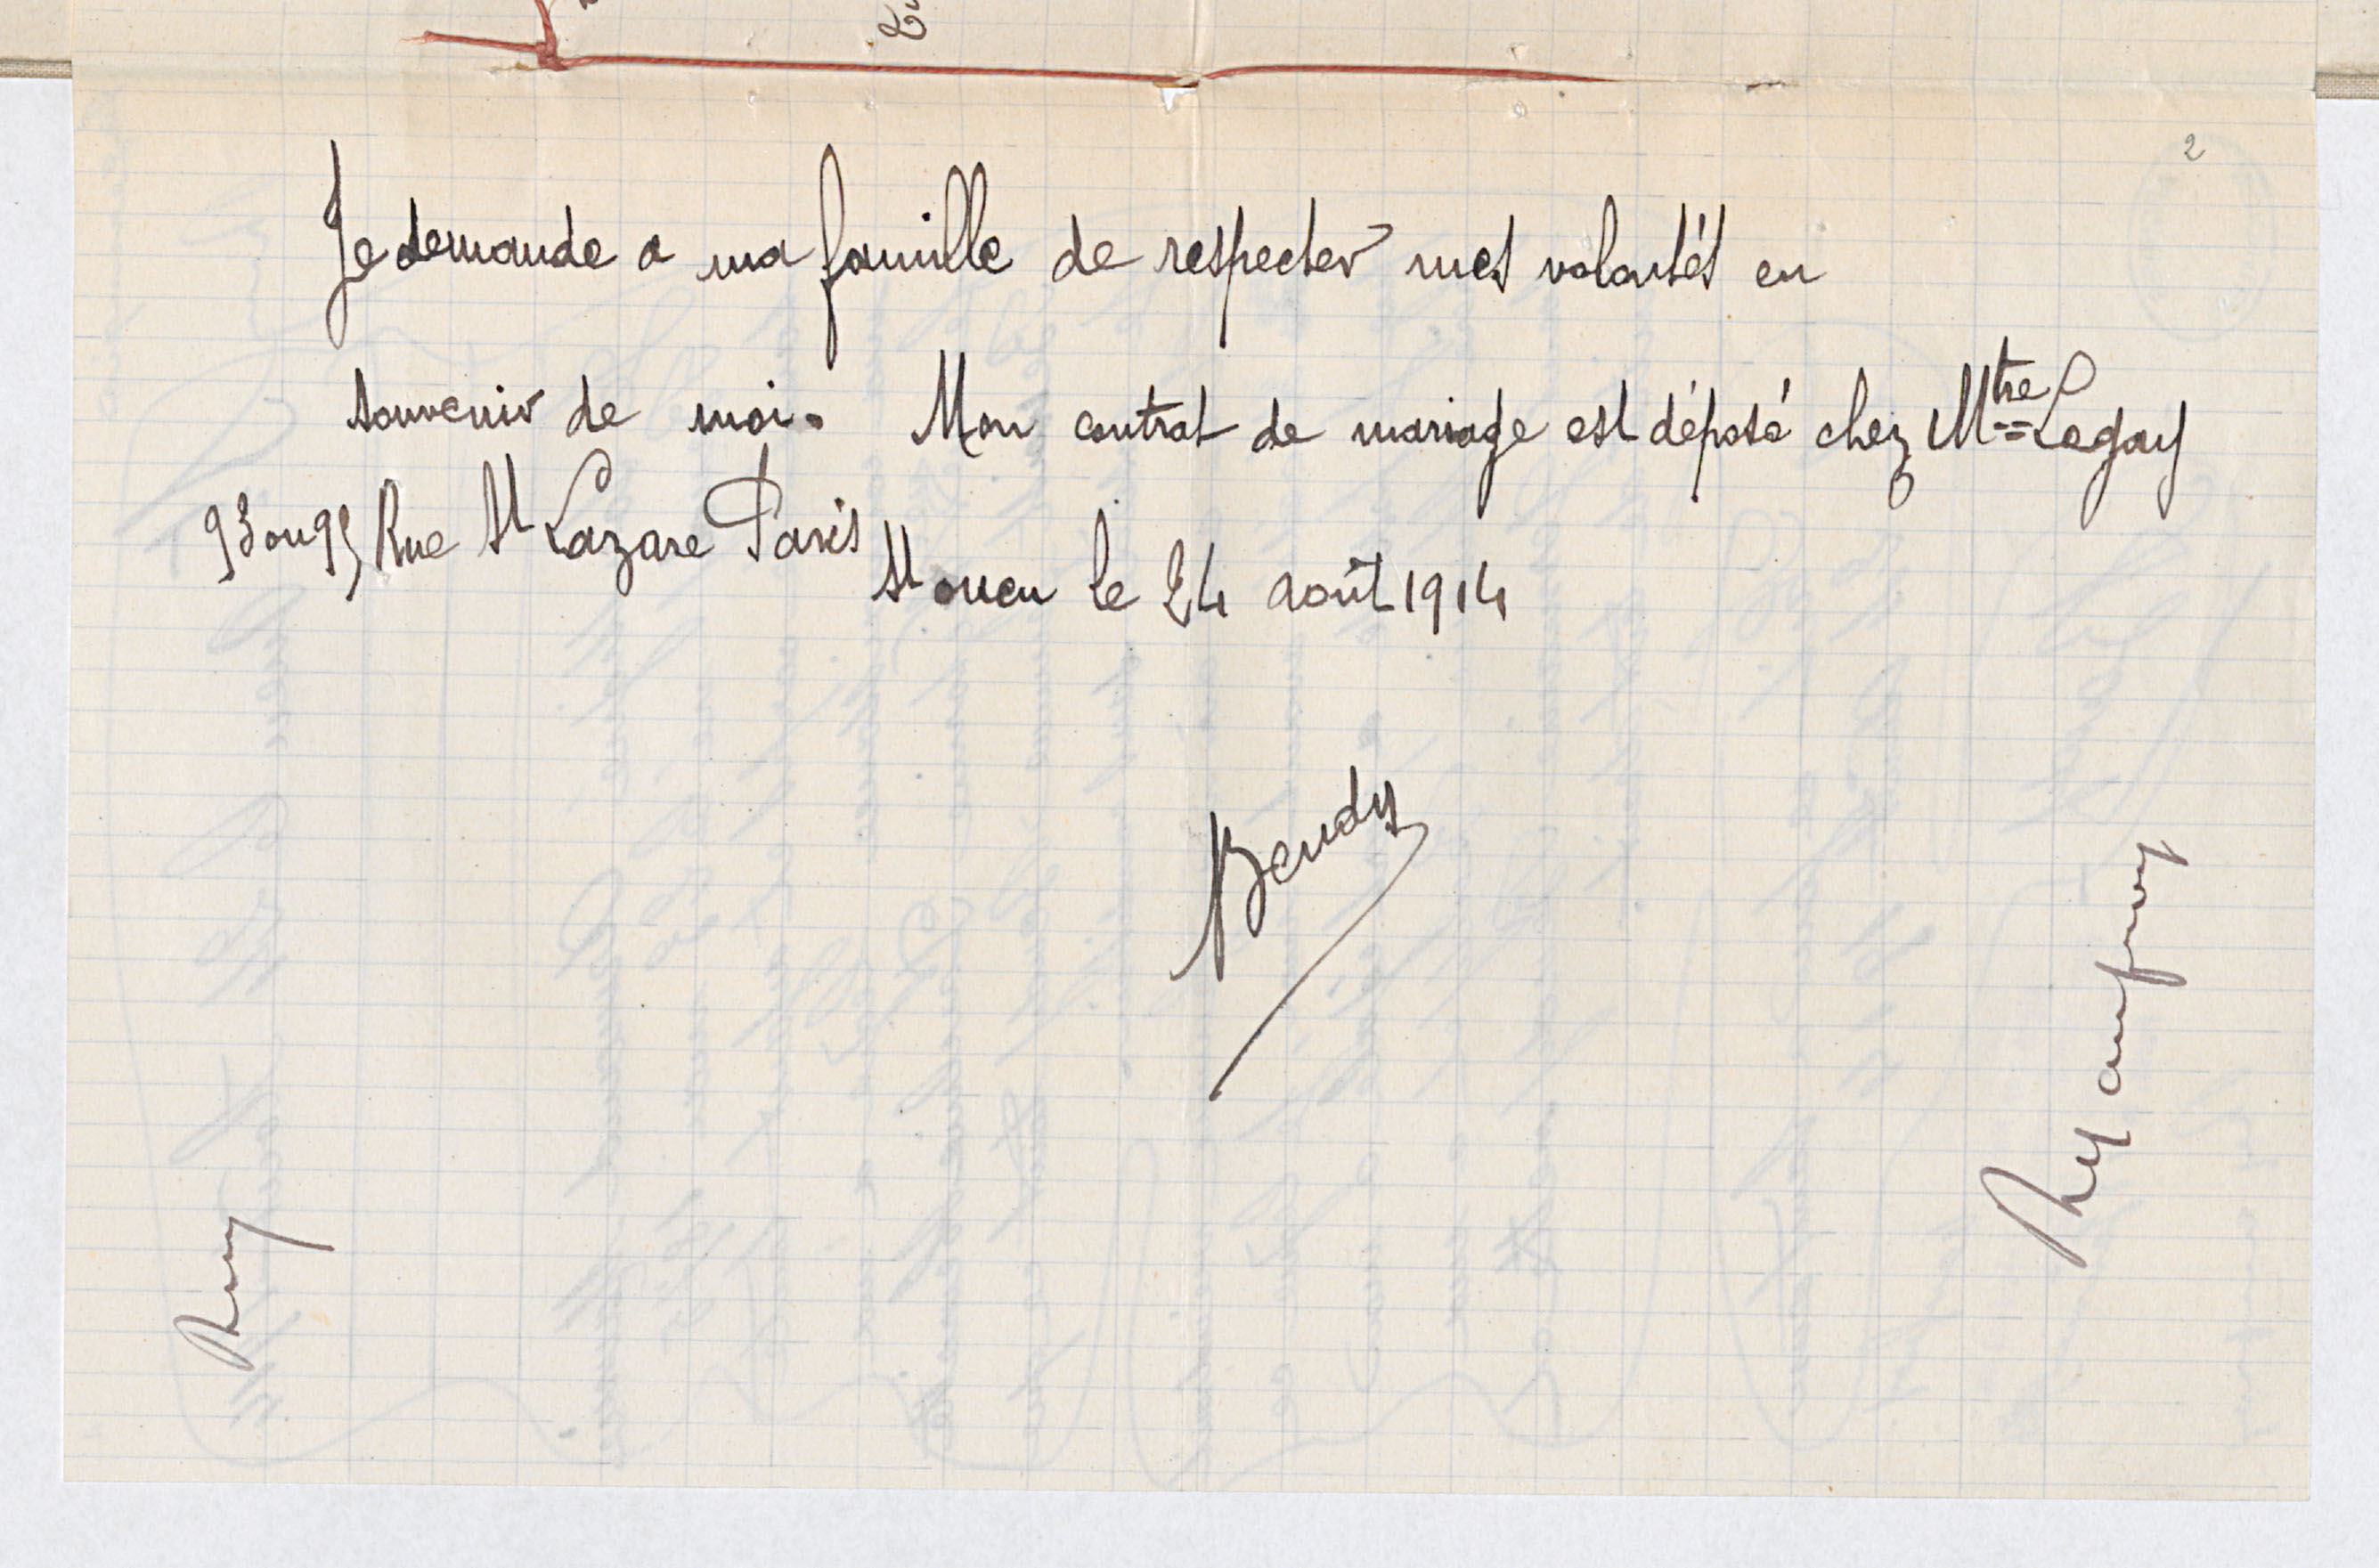 2
Je demande a ma famille de respecter mes volontés en
souvenir de moi. Mon contrat de mariage est déposé chez Mtre Legay
93 ou 95 Rue St Lazare Paris
St ouen le 24 août 1914